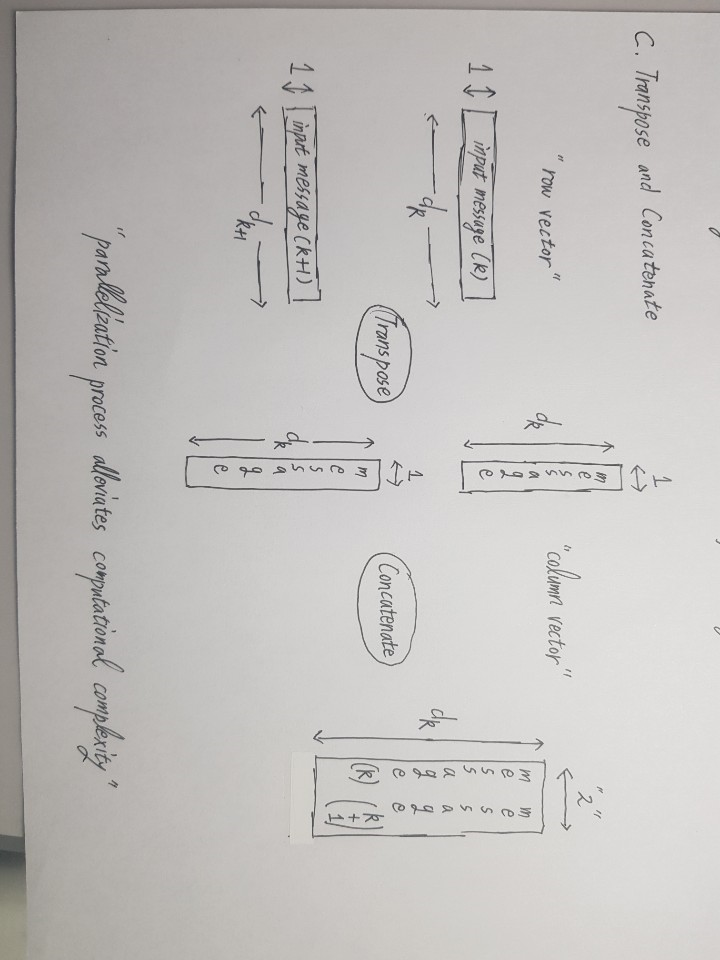 C. Transpose and Concatenate
"row vector"
1
input message (k)
dk
1
input message (k+1)
dk+1
Transpose
1
dk
message
1
dk
message
"column vector"
Concatenate
"2"
dk
message (k)
message (k+1)
"parallelization process alleviates computational complexity"